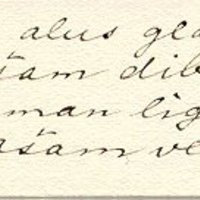 alus gla
šam dib
man lig
ašam ve